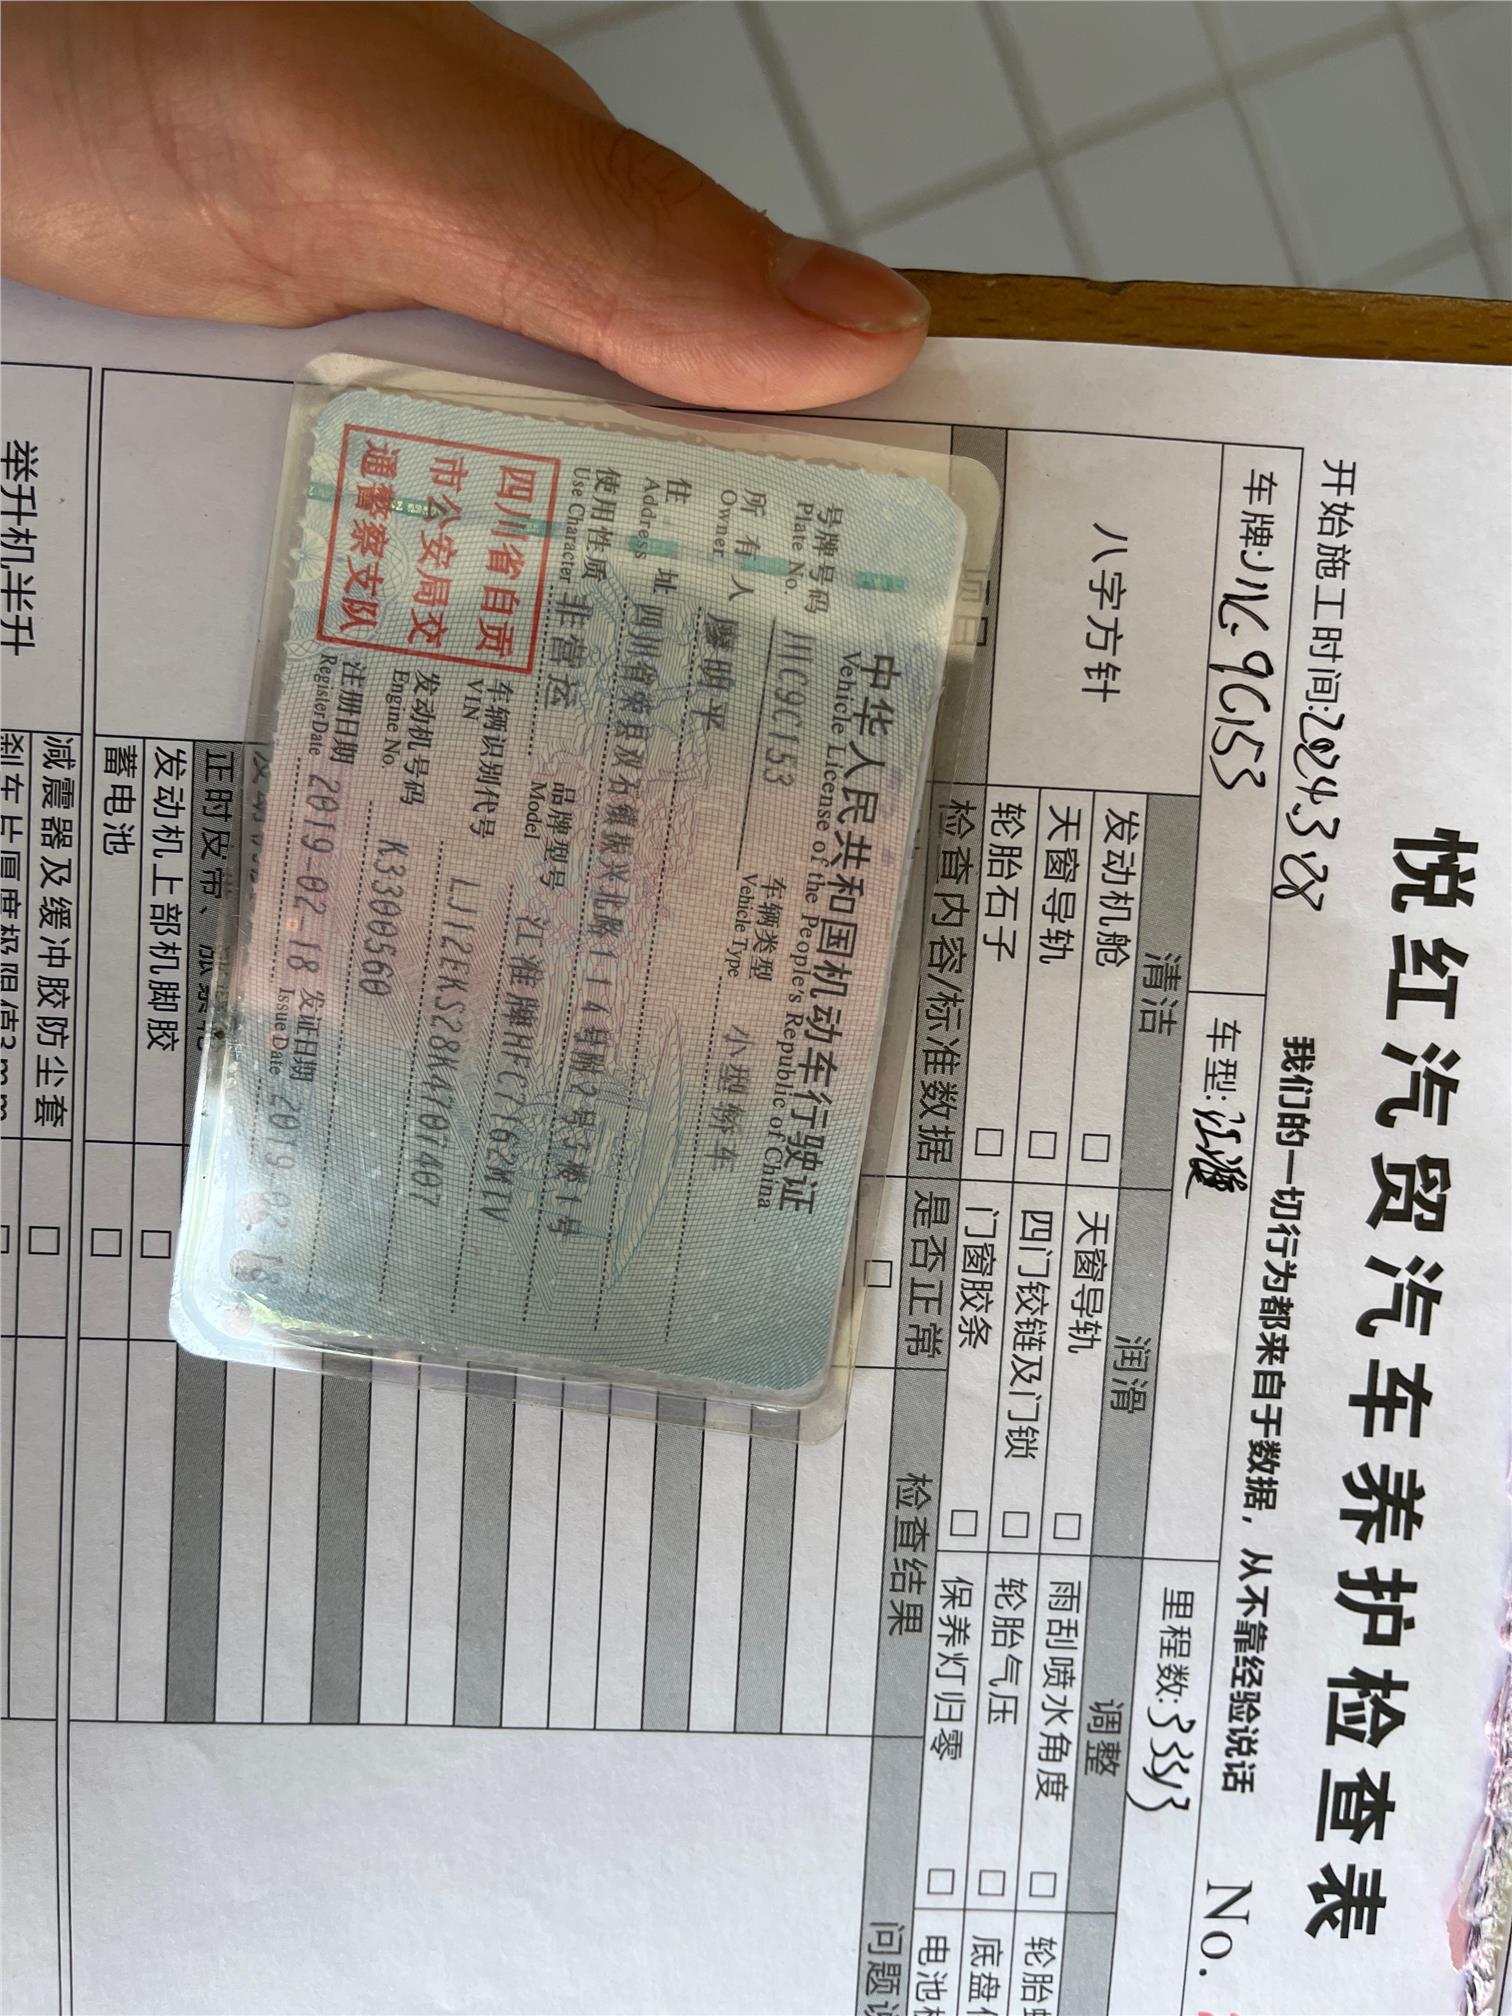 悦红汽贸汽车养护检查表
我们的一切行为都来自于数据，从不靠经验说话
No.
开始施工时间:2024.3.28
车牌:川C.9C153
车型:江淮
里程数:
八字方针
清洁
润滑
调整
发动机舱 □
天窗导轨 □
雨刮喷水角度 □
天窗导轨 □
四门铰链及门锁 □
轮胎气压 □
轮胎石子 □
门窗胶条 □
保养灯归零 □
检查内容/标准数据
是否正常
检查结果
中华人民共和国机动车行驶证
Vehicle License of the People's Republic of China
号牌号码 川C9C153 车辆类型 小型轿车
Plate No. Vehicle Type
所有人 廖明平
Owner
住址 四川省荣县双石镇振兴北路114号附2号3楼1号
Address
使用性质 非营运 品牌型号 江淮牌HFC7162M1V
Use Character Model
四川省自贡
市公安局交
通警察支队
车辆识别代号 LJ12EKS28K4707407
VIN
发动机号码 K3300560
Engine No.
注册日期 2019-02-18 发证日期 2019-02-18
Register Date Issue Date
发动机上部机脚胶 □
蓄电池 □
举升机半升
减震器及缓冲胶防尘套 □